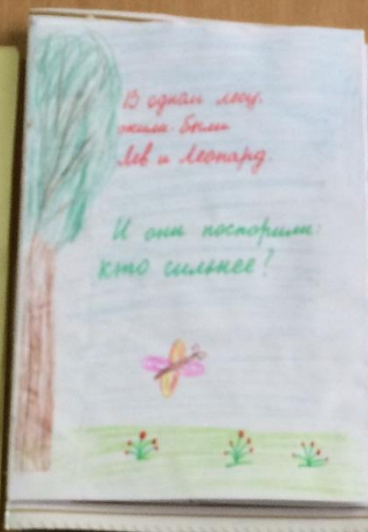 В одном лесу,
жили-были
Лев и Леопард.
И они поспорили:
кто сильнее?